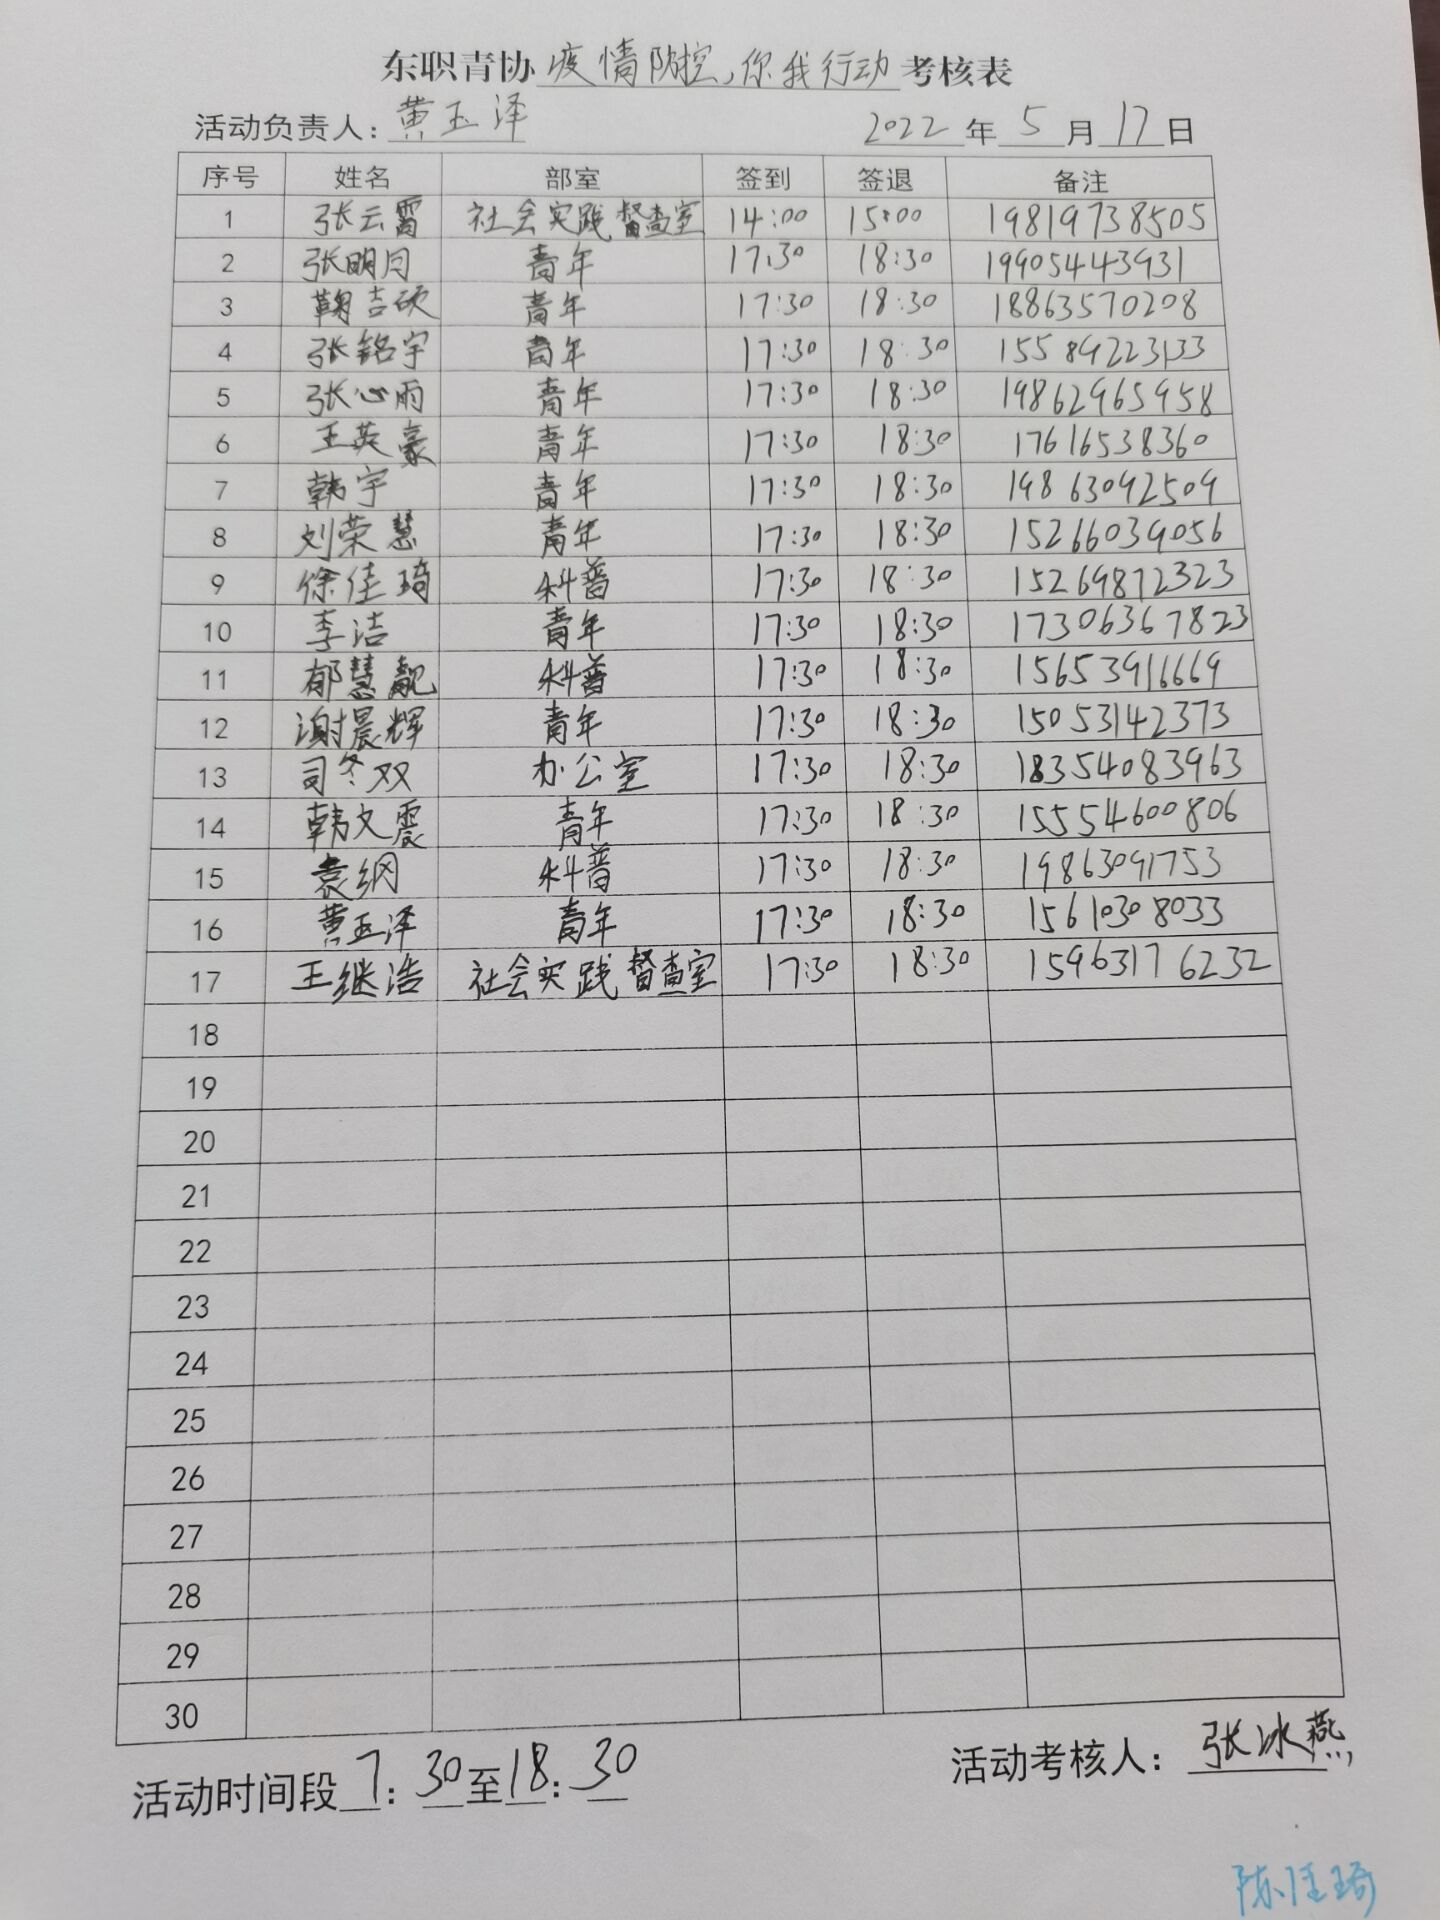 东职青协 疫情防控，你我行动 考核表
活动负责人：黄玉泽 2022年5月17日
序号 姓名 部室 签到 签退 备注
1 张云霄 社会实践督查室 14:00 15:00 19819738505
2 张明月 青年 17:30 18:30 19905443931
3 鞠吉硕 青年 17:30 18:30 18863570208
4 张铭宇 青年 17:30 18:30 15589223133
5 张心雨 青年 17:30 18:30 19862965958
6 王英豪 青年 17:30 18:30 17616538360
7 韩宇 青年 17:30 18:30 19863092509
8 刘荣慧 青年 17:30 18:30 15266039056
9 徐佳琦 科普 17:30 18:30 15269872323
10 李洁 青年 17:30 18:30 17306367823
11 郁慧靓 科普 17:30 18:30 15653916669
12 谢晨辉 青年 17:30 18:30 15053142373
13 司冬双 办公室 17:30 18:30 18354083963
14 韩文震 青年 17:30 18:30 15554600806
15 袁纲 科普 17:30 18:30 19863091753
16 黄玉泽 青年 17:30 18:30 15610308033
17 王继浩 社会实践督查室 17:30 18:30 15963176232
18
19
20
21
22
23
24
25
26
27
28
29
30
活动时间段 7:30至18:30 活动考核人：张冰燕
陈佳琦